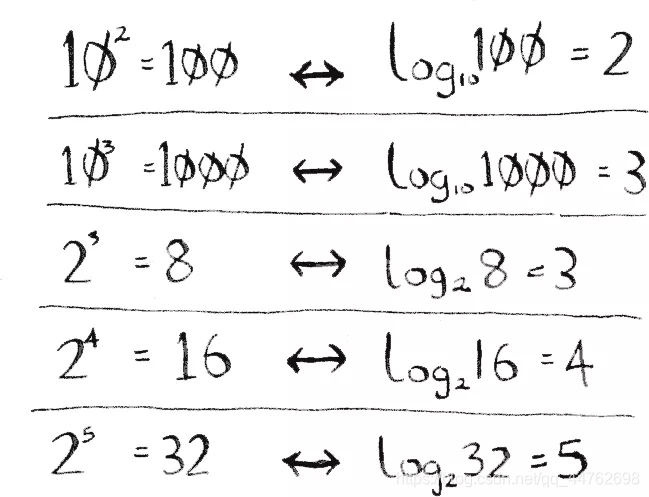 10² = 100 ↔ log₁₀100 = 2
10³ = 1000 ↔ log₁₀1000 = 3
2³ = 8 ↔ log₂8 = 3
2⁴ = 16 ↔ log₂16 = 4
2⁵ = 32 ↔ log₂32 = 5
https://blog.csdn.net/qq_44762698